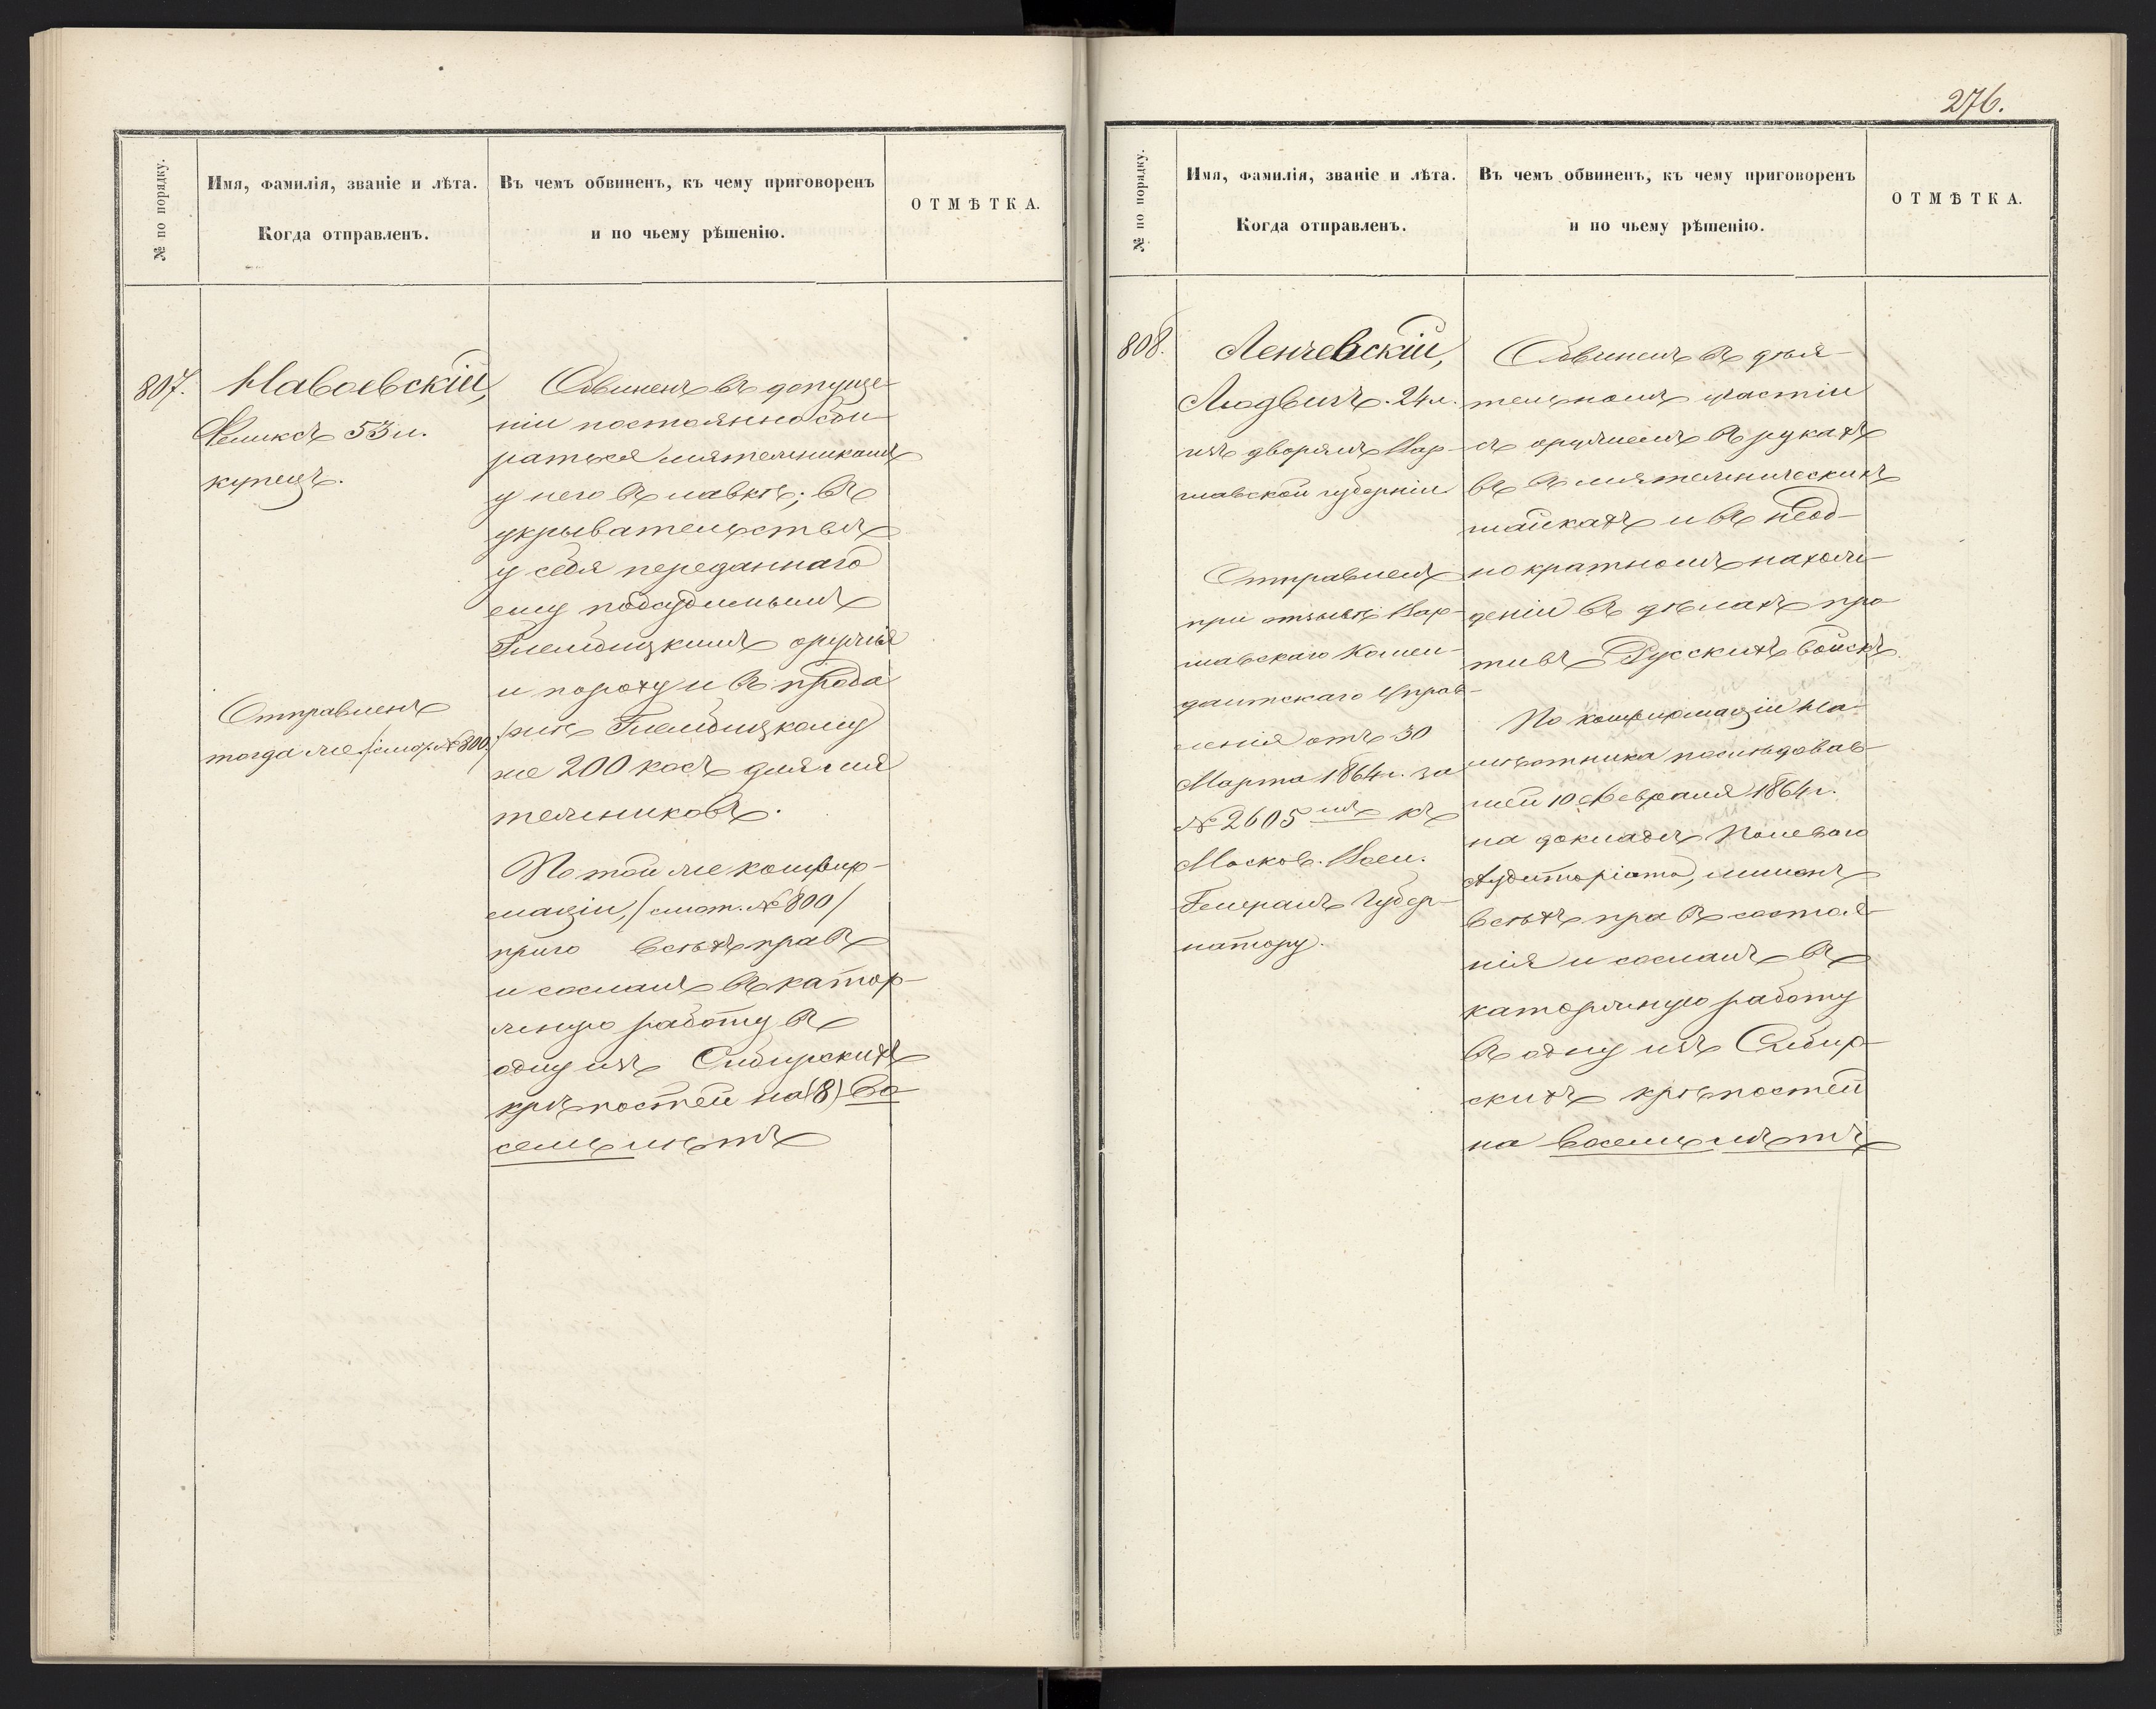 № по порядку.
Имя, фамилія, званіе и лѣта.
Когда отправленъ.
Въ чемъ обвиненъ, къ чему приговоренъ
и по чьему рѣшенію.
ОТМѢТКА.
807.
Навоевскій,
Феликсъ 53 л.
купецъ.
Отправленъ
тогда же /смор. № 800/
Обвиненъ въ допуще-
ніи постоянно соби-
раться мятежникамъ
у него въ лавкѣ; въ
укрывательствѣ
у себя переданнаго
ему подсудимымъ
оружія
и пороху и въ прода
жѣ
же 200 косъ для мя
тежниковъ.
По той же конфир-
маціи, /смот. № 800/
приго всѣхъ правъ
и сосланъ въ катор-
жную работу въ
одну изъ Сибирскихъ
крѣпостей на (8) во
семь лѣтъ
276.
№ по порядку.
Имя, фамилія, званіе и лѣта.
Когда отправленъ.
Въ чемъ обвиненъ, къ чему приговоренъ
и по чьему рѣшенію.
ОТМѢТКА.
808.
Ленчевскій,
Людвигъ. 24 л.
изъ дворянъ Вар-
шавской губерніи
Отправленъ
при отзывѣ Вар-
шавскаго Комен-
дантскаго Управ-
ленія отъ 30
Марта 1864 г. за
№ 2605 къ
Москов. Воен.
Генералъ Губер-
натору.
Обвиненъ въ дѣя-
тельномъ участіи
съ оружіемъ въ рукахъ
въ въ мятежническихъ
шайкахъ и въ неод-
нократномъ нахож-
деніи въ дѣлахъ про
тивъ Русскихъ войскъ.
По конфирмаціи На-
мѣстника послѣдовав-
шей 10 Февраля 1864 г.
на докладъ Полеваго
Аудиторіата, лишенъ
всѣхъ правъ состоя-
нія и сосланъ въ
каторжную работу
въ одну изъ Сибир-
скихъ крѣпостей
на восемь лѣтъ